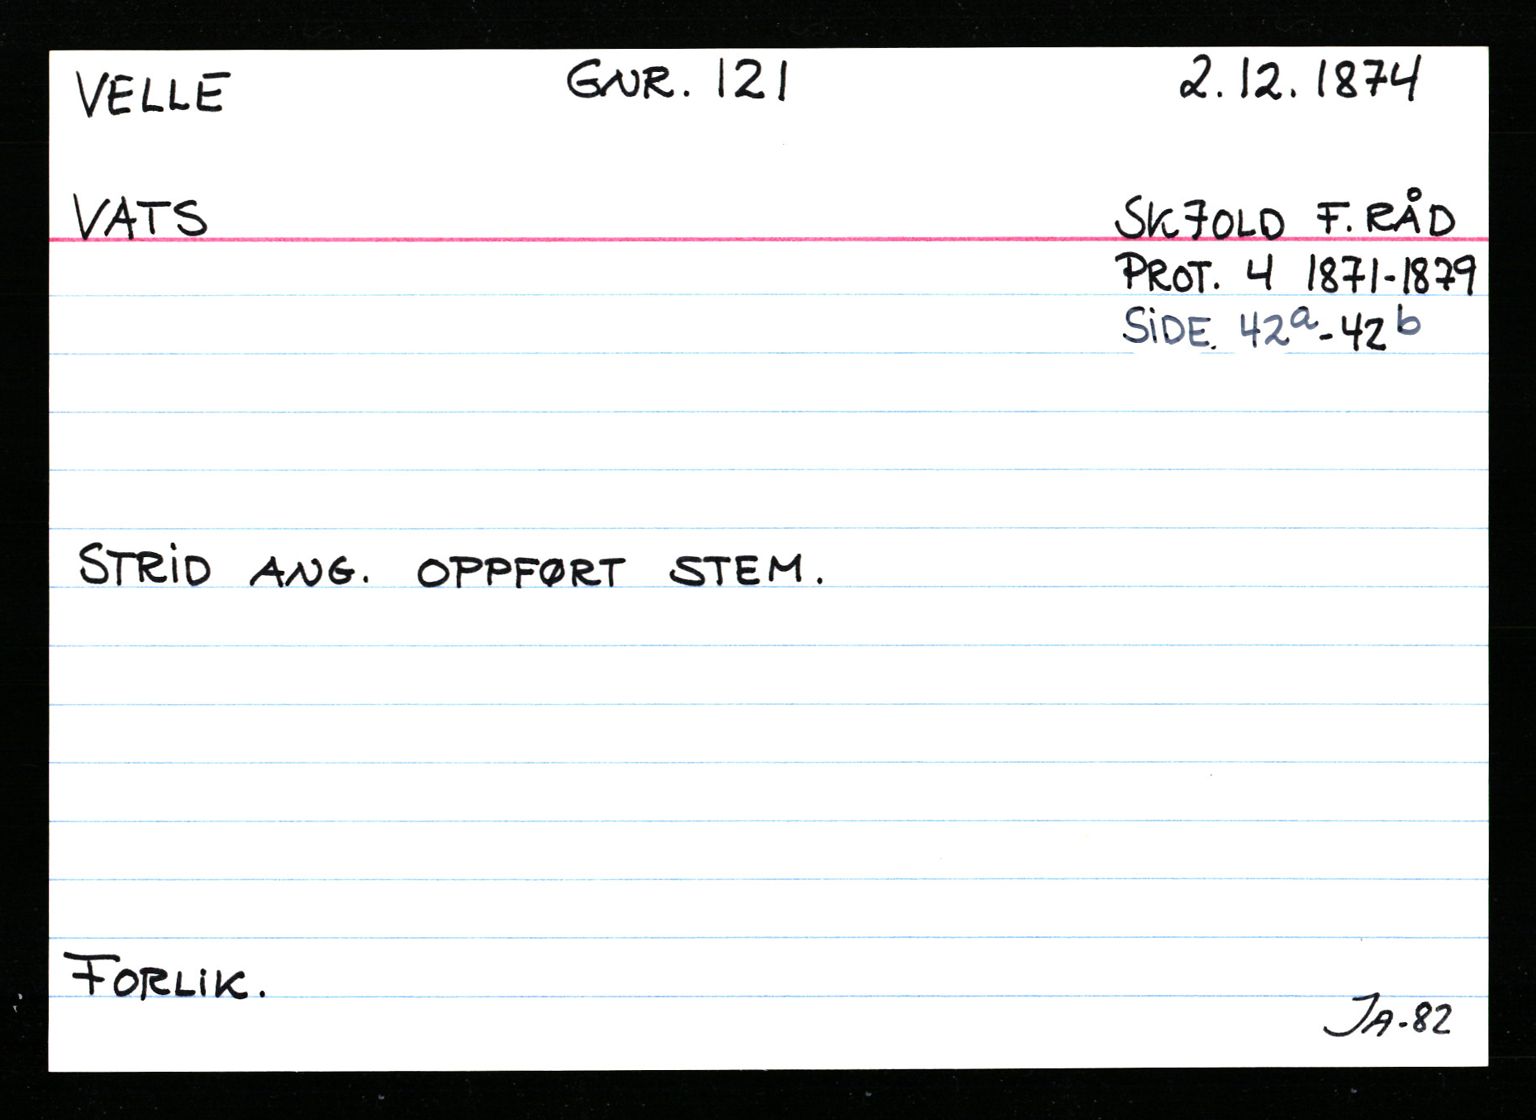 VELLE GNR. 121 2.12.1874
VATS SKJOLD F. RÅD
PROT. 4 1871-1879
SIDE. 42a-42b
STRID ANG. OPPFØRT STEM.
FORLIK.
JA-82